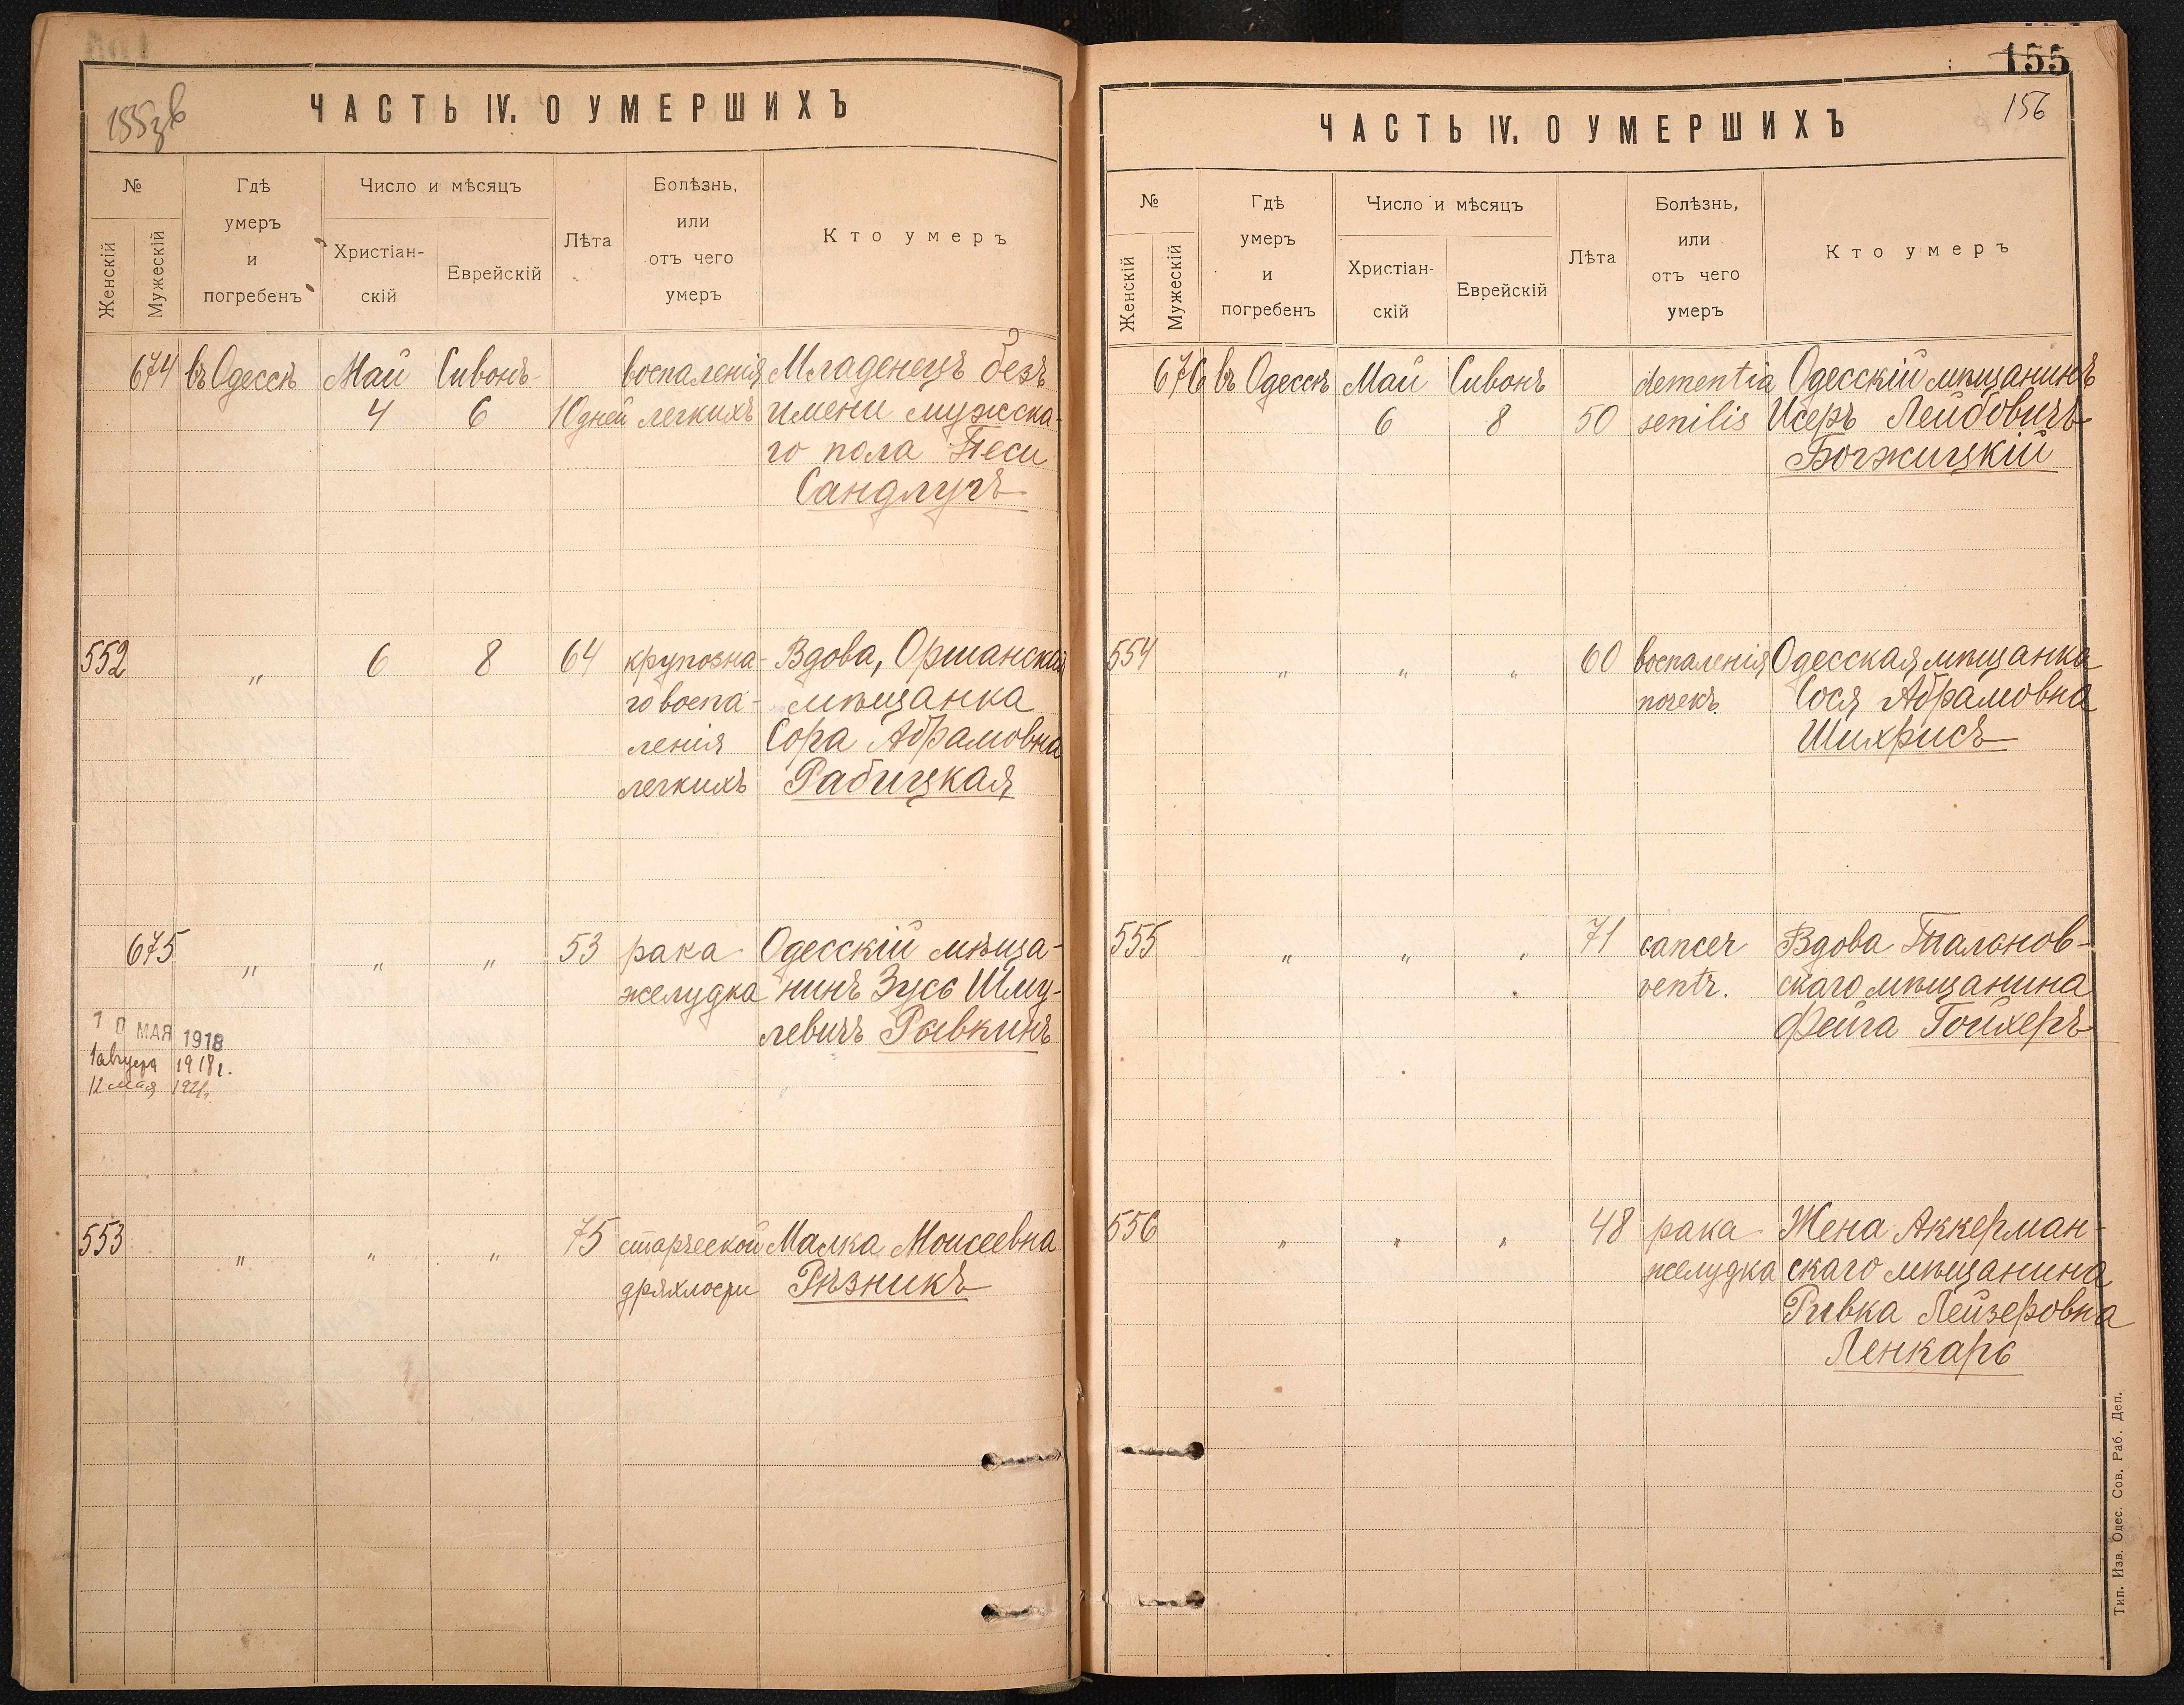 155зв
ЧАСТЬ IV. О УМЕРШИХЪ
№
Женскій
Мужескій
Гдѣ
умеръ
и
погребенъ
Число и мѣсяцъ
Христіан-
скій
Еврейскій
Лѣта
Болѣзнь,
или
отъ чего
умеръ
Кто умеръ
674 въ Одессѣ Май Сивонъ воспаленія Младенецъ безъ
4 6 10 дней легкихъ имени мужска-
го пола Песи
Сандлугъ
552 " 6 8 64 крупозна- Вдова, Оршанская
го воспа- мѣщанка
ленія Сора Абрамовна
легкихъ Рабицкая
675 " " " 53 рака Одесскій мѣща-
желудка нинъ Зусь Шму-
левичъ Рывкинъ
10 МАЯ 1918
1 августа 1918 г.
12 мая 1921 г.
553 " " " 75 старческой Малка Моисеевна
дряхлости Рѣзникъ
155
156
ЧАСТЬ IV. О УМЕРШИХЪ
№
Женскій
Мужескій
Гдѣ
умеръ
и
погребенъ
Число и мѣсяцъ
Христіан-
скій
Еврейскій
Лѣта
Болѣзнь,
или
отъ чего
умеръ
Кто умеръ
676 въ Одессѣ Май Сивонъ dementia Одесскій мѣщанинъ
6 8 50 senilis Исеръ Лейбовичъ
Богжицкій
554 " " " 60 воспаленія Одесская мѣщанка
почекъ Сося Абрамовна
Шихрисъ
555 " " " 71 cancer Вдова
ventr. скаго мѣщанина
Фейга Гойхеръ
556 " " " 48 рака Жена Аккерман-
желудка скаго мѣщанина
Ривка Лейзеровна
Ленкарь
Тип. Изв. Одес. Сов. Раб. Деп.